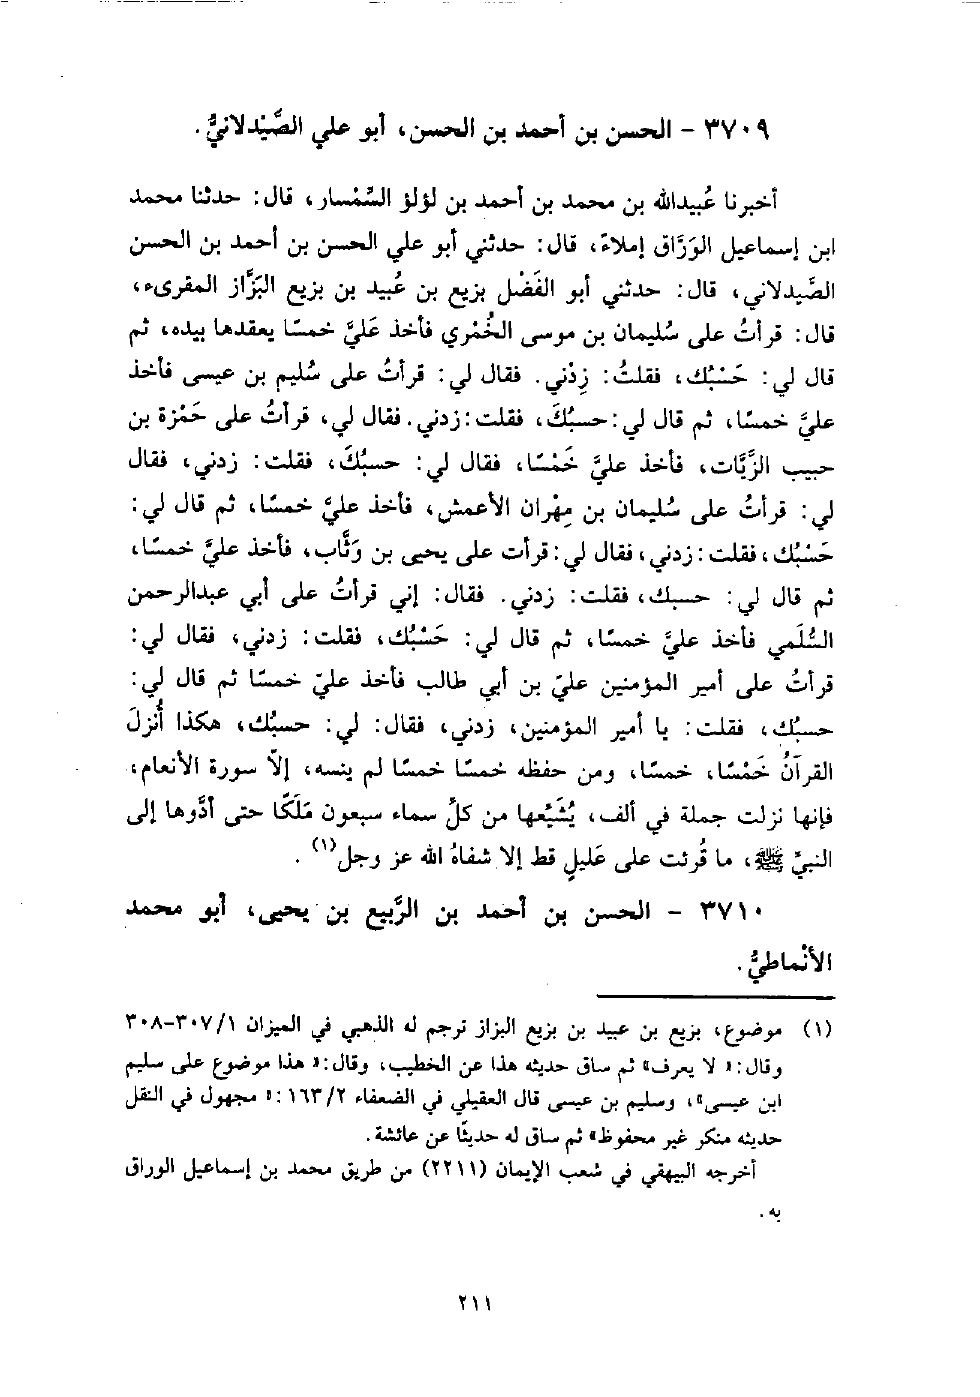 ٣٧٠٩ - الحسن بن أحمد بن الحسن، أبو علي الصَّيْدلانيُّ.
أخبرنا عُبيدالله بن محمد بن أحمد بن لؤلؤ السِّمْسار، قال: حدثنا محمد
ابن إسماعيل الوَرَّاق إملاءً، قال: حدثني أبو علي الحسن بن أحمد بن الحسن
الصَّيدلاني، قال: حدثني أبو الفَضْل بزيع بن عُبيد بن بزيع البَزَّاز المقرىء،
قال: قرأتُ على سُليمان بن موسى الخُمْري فأخذ عَليَّ خمسًا يعقدها بيده، ثم
قال لي: حَسْبُك، فقلتُ: زِدْني. فقال لي: قرأتُ على سُليم بن عيسى فأخذ
عليَّ خمسًا، ثم قال لي: حسبُكَ، فقلت: زدني. فقال لي، قرأتُ على حَمْزة بن
حبيب الزَّيَّات، فأخذ عليَّ خَمْسًا، فقال لي: حسبُكَ، فقلت: زدني، فقال
لي: قرأتُ على سُليمان بن مِهْران الأعمش، فأخذ عليَّ خمسًا، ثم قال لي:
حَسْبُك، فقلت: زدني، فقال لي: قرأت على يحيى بن وَثَّاب، فأخذ عليَّ خمسًا،
ثم قال لي: حسبك، فقلت: زدني. فقال: إني قرأتُ على أبي عبدالرحمن
السُّلَمي فأخذ عليَّ خمسًا، ثم قال لي: حَسْبُك، فقلت: زدني، فقال لي:
قرأتُ على أمير المؤمنين عليّ بن أبي طالب فأخذ عليّ خمسًا ثم قال لي:
حسبُك، فقلت: يا أمير المؤمنين، زدني، فقال: لي: حسبُك، هكذا أُنزلَ
القرآنُ خَمْسًا، خمسًا، ومن حفظه خمسًا خمسًا لم ينسه، إلّا سورة الأنعام،
فإنها نزلت جملة في ألف، يُشَيِّعها من كلِّ سماء سبعون مَلَكًا حتى أدَّوها إلى
النبيِّ ﷺ، ما قُرئت على عَليلٍ قط إلا شفاهُ الله عز وجل(١).
٣٧١٠ - الحسن بن أحمد بن الرَّبيع بن يحيى، أبو محمد
الأنْماطيُّ.
(١) موضوع، بزيع بن عبيد بن بزيع البزاز ترجم له الذهبي في الميزان ١/ ٣٠٧-٣٠٨
وقال: «لا يعرف» ثم ساق حديثه هذا عن الخطيب، وقال: «هذا موضوع على سليم
ابن عيسى»، وسليم بن عيسى قال العقيلي في الضعفاء ٢/ ١٦٣: «مجهول في النقل
حديثه منكر غير محفوظ» ثم ساق له حديثًا عن عائشة.
أخرجه البيهقي في شعب الإيمان (٢٢١١) من طريق محمد بن إسماعيل الوراق
به.
٢١١